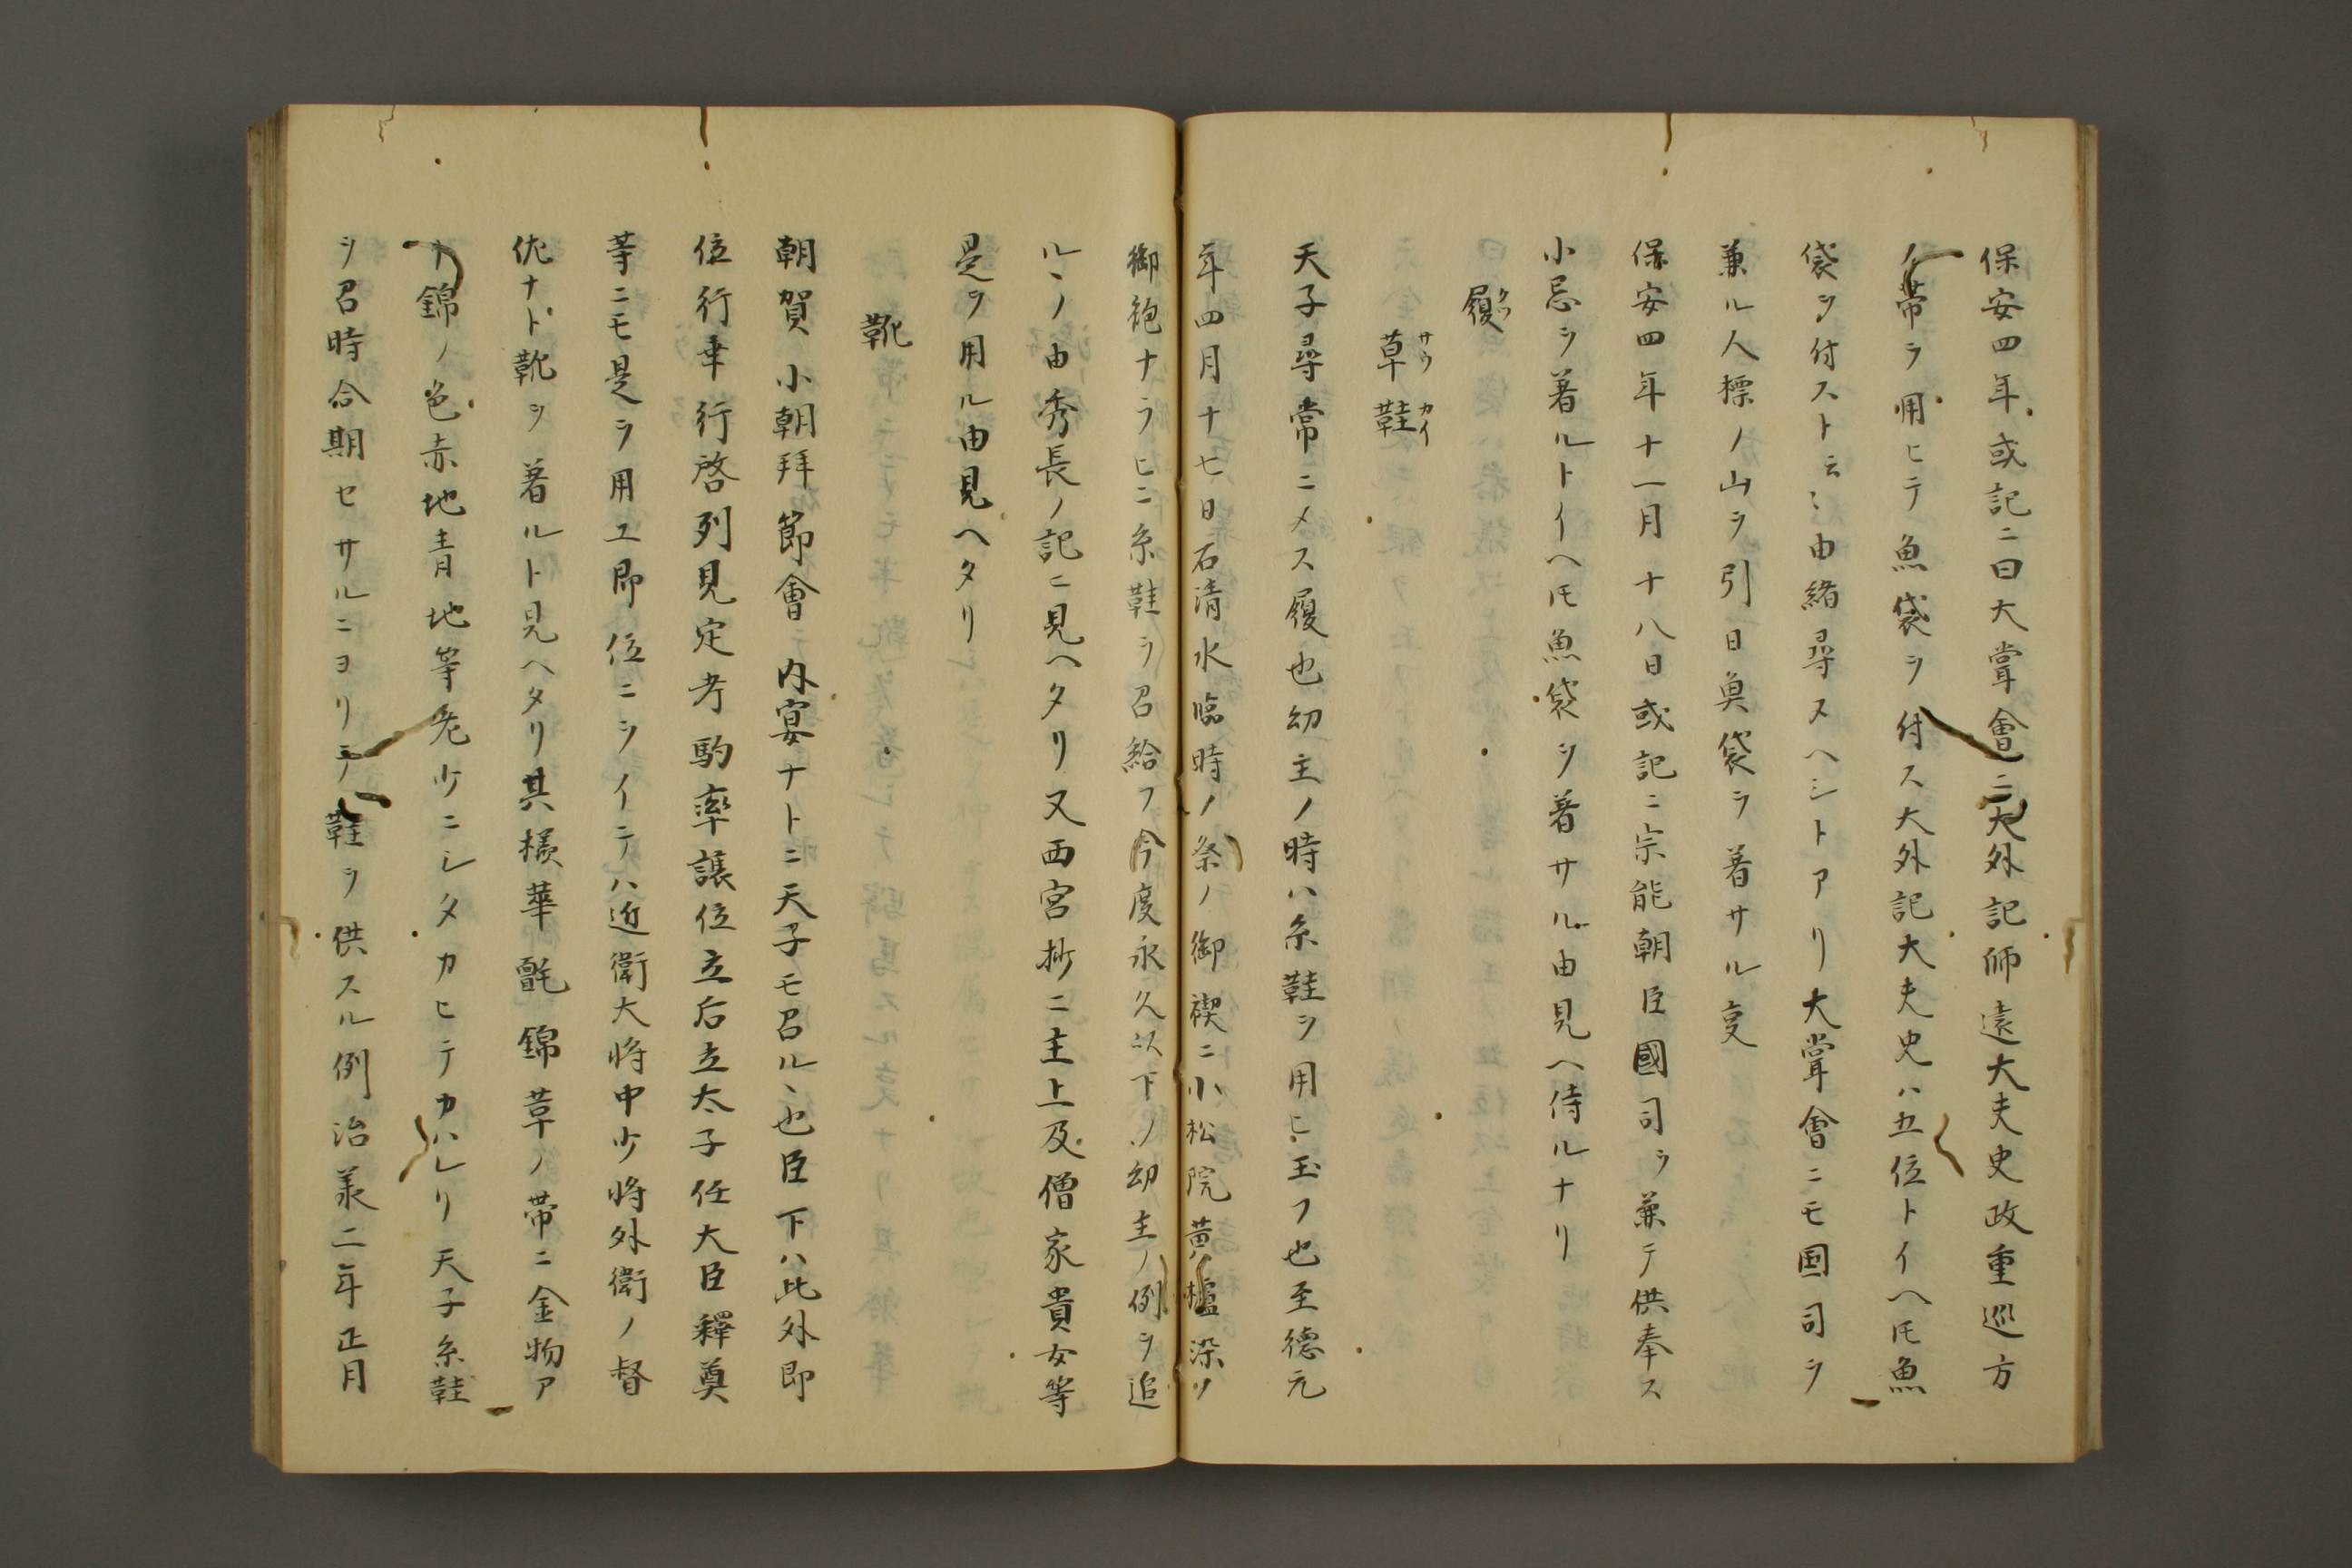 保安四年或記ニ曰大甞會ニ大外記師遠大夫史政重巡方
ノ帯ヲ用ヒテ魚袋ヲ付ス大外記大夫史ハ五位トイヘ𪜈魚
袋ヲ付スト云〻由緒尋ヌヘシトアリ大甞會ニモ国司ヲ
兼ル人標ノ山ヲ引日魚袋ヲ着サル叓
保安四年十一月十八日或記ニ宗能朝臣國司ヲ兼テ供奉ス
小忌ヲ着ルトイヘ𪜈魚袋ヲ着サル由見ヘ侍ルナリ
履クツ
草鞋サウカイ
天子尋常ニメス履也幼主ノ時ハ糸鞋ヲ用ヒ玉フ也至徳元
年四月十七日石清水臨時ノ祭ノ御禊ニ小松院黄ノ櫨染ノ
御袍ナラヒニ糸鞋ヲ召給フ今度永久以下ノ幼主ノ例ヲ追
ルヽノ由秀長ノ記ニ見ヘタリ又西宮抄ニ主上及僧家貴女等
是ヲ用ル由見ヘタリ
靴
朝賀小朝拜節會内宴ナトニ天子モ召ルヽ也臣下ハ此外即
位行幸行啓列見定考駒率譲位立后立太子任大臣釋奠
等ニモ是ヲ用ユ即位ニヲイテハ近衛大将中少将外衛ノ督
佐ナト靴ヲ著ルト見ヘタリ其樣華氈錦草ノ帯ニ金物ア
リ錦ノ色赤地青地等老少ニシタカヒテカハレリ天子糸鞋
ヲ召時合期セサルニヨリテ鞋ヲ供スル例治承二年正月